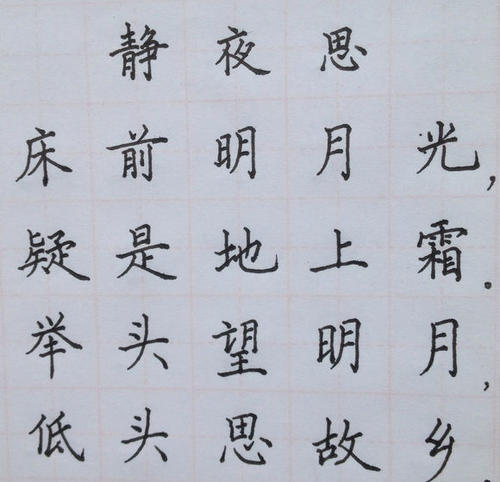 静夜思
床前明月光，
疑是地上霜。
举头望明月，
低头思故乡。